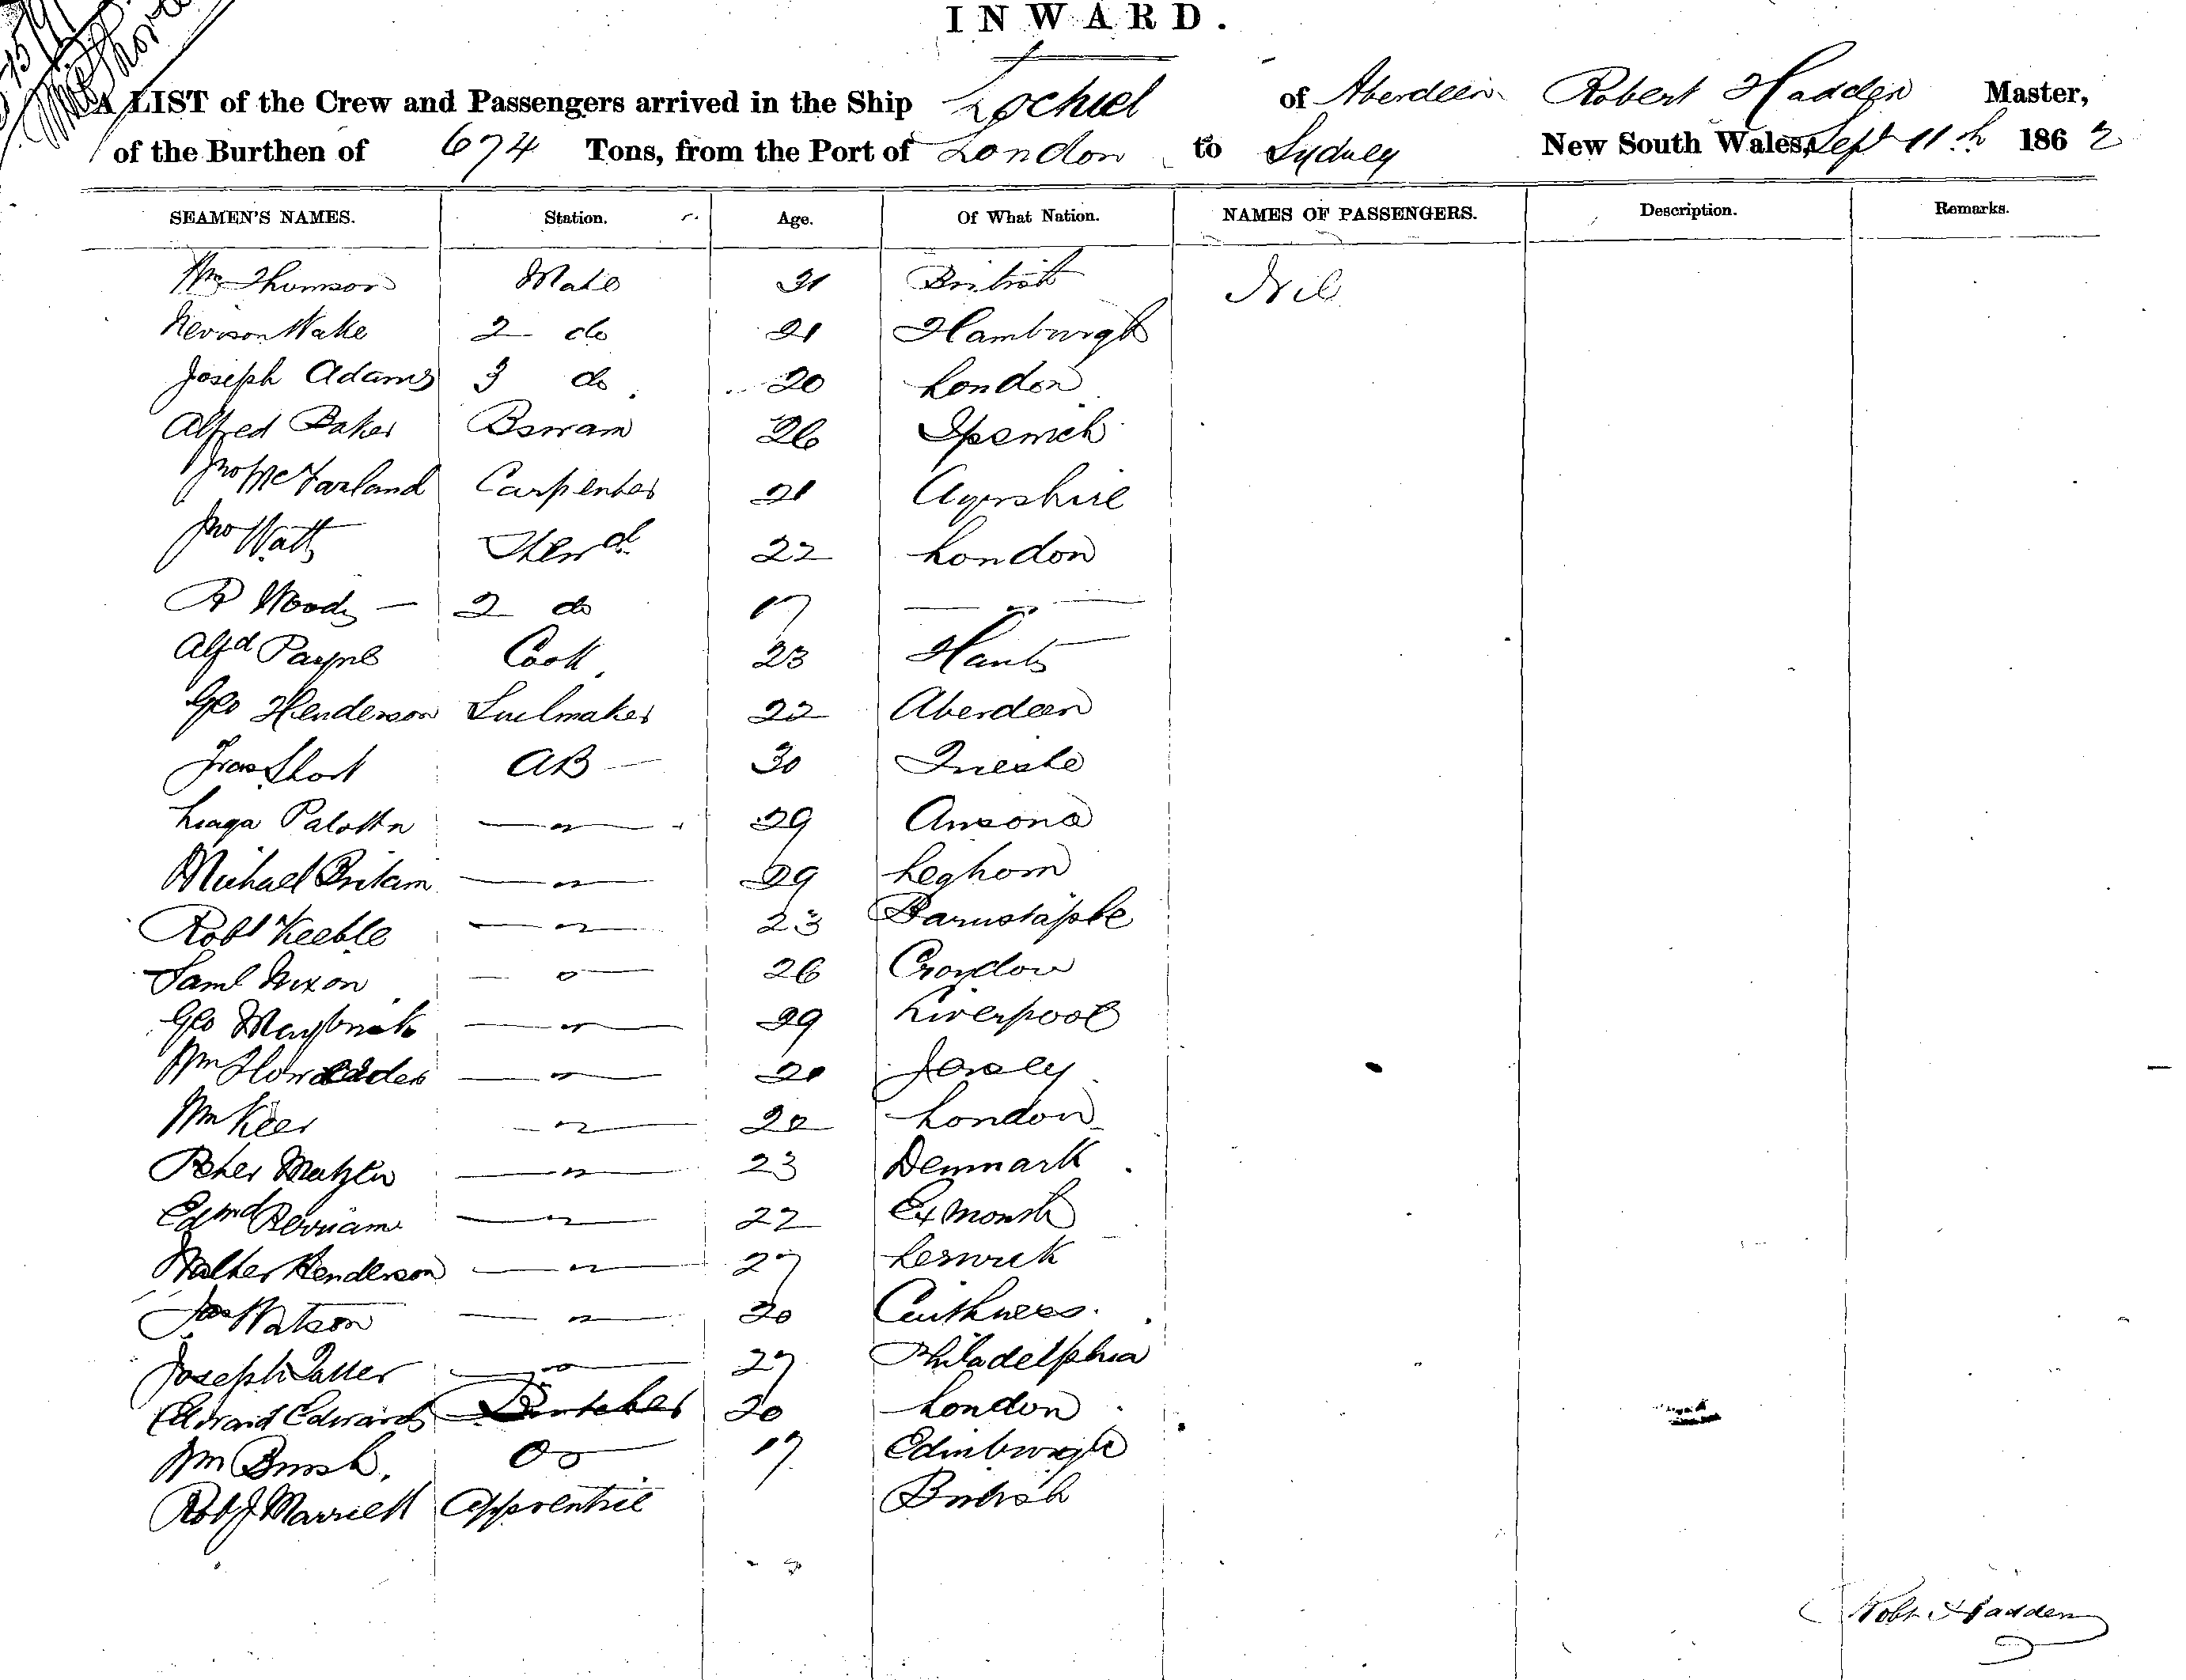 INWARD.
A LIST of the Crew and Passengers arrived in the Ship Lochiel of Aberdeen Robert Hadden Master,
of the Burthen of 674 Tons, from the Port of London to Sydney New South Wales, Sept 11th 1862
SEAMEN'S NAMES. Station. Age. Of What Nation. NAMES OF PASSENGERS. Description. Remarks.
Wm Thomson Mate 31 British Nil
Nevison Wake 2 do 21 Hamburgh
Joseph Adams 3 do 20 London
Alfred Baker Bswain 26 Ipswich
Jno McFarland Carpenter 21 Ayrshire
Jno Watts Stewd 22 London
R Woods — 2 do 17 — " —
Alfd Payne Cook 23 Hants
Geo Henderson Sailmaker 22 Aberdeen
Fras Short AB — 30 Trieste
— " — 29 Ancona
Michael Britain — " — 29 Leghorn
Robt Keeble — " — 23 Barnstaple
Saml Nixon — " — 26 Croydon
Geo — " — 29 Liverpool
Wm — " — Jersey
Wm Keer — " — 22 London
Peter — " — 23 Denmark
Edmd — " — 22 Exmouth
Walter Henderson — " — 27 Lerwick
Jas Watson — " — 20 Caithness.
Joseph — " — 27 Philadelphia
Edward Edwards Butcher 20 London
Wm OS 17 Edinburgh
Robt J Marriett Apprentice British
Robt Hadden